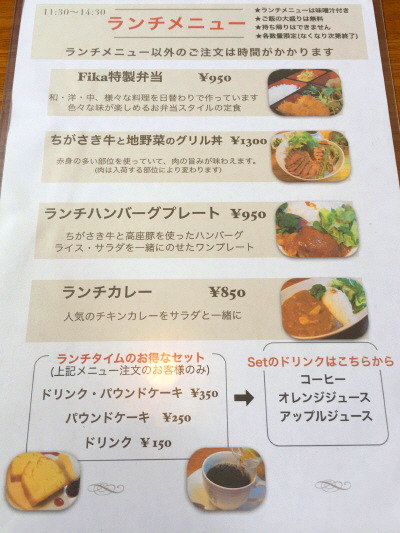 11:30～14:30
ランチメニュー
★ランチメニューは味噌汁付き
★ご飯の大盛りは無料
★持ち帰りはできません
★各数量限定(なくなり次第終了)
ランチメニュー以外のご注文は時間がかかります
Fika特製弁当 ¥950
和・洋・中、様々な料理を日替わりで作っています
色々な味が楽しめるお弁当スタイルの定食
ちがさき牛と地野菜のグリル丼 ¥1300
赤身の多い部位を使っていて、肉の旨みが味わえます。
(肉は入荷する部位により変わります)
ランチハンバーグプレート ¥950
ちがさき牛と高座豚を使ったハンバーグ
ライス・サラダを一緒にのせたワンプレート
ランチカレー ¥850
人気のチキンカレーをサラダと一緒に
ランチタイムのお得なセット
(上記メニュー注文のお客様のみ)
ドリンク・パウンドケーキ ¥350
パウンドケーキ ¥250
ドリンク ¥150
Setのドリンクはこちらから
コーヒー
オレンジジュース
アップルジュース